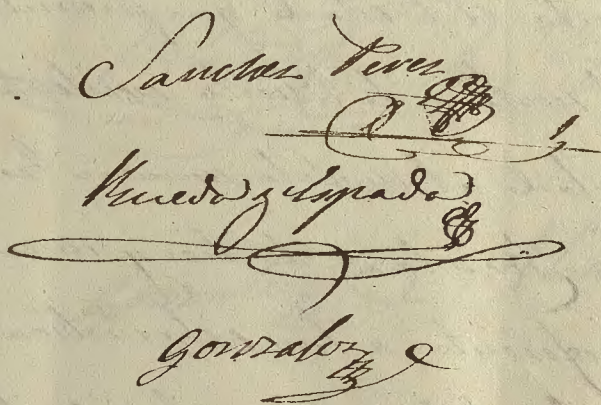 Sanchez Perez
Rueda y Espada
Gonzalez